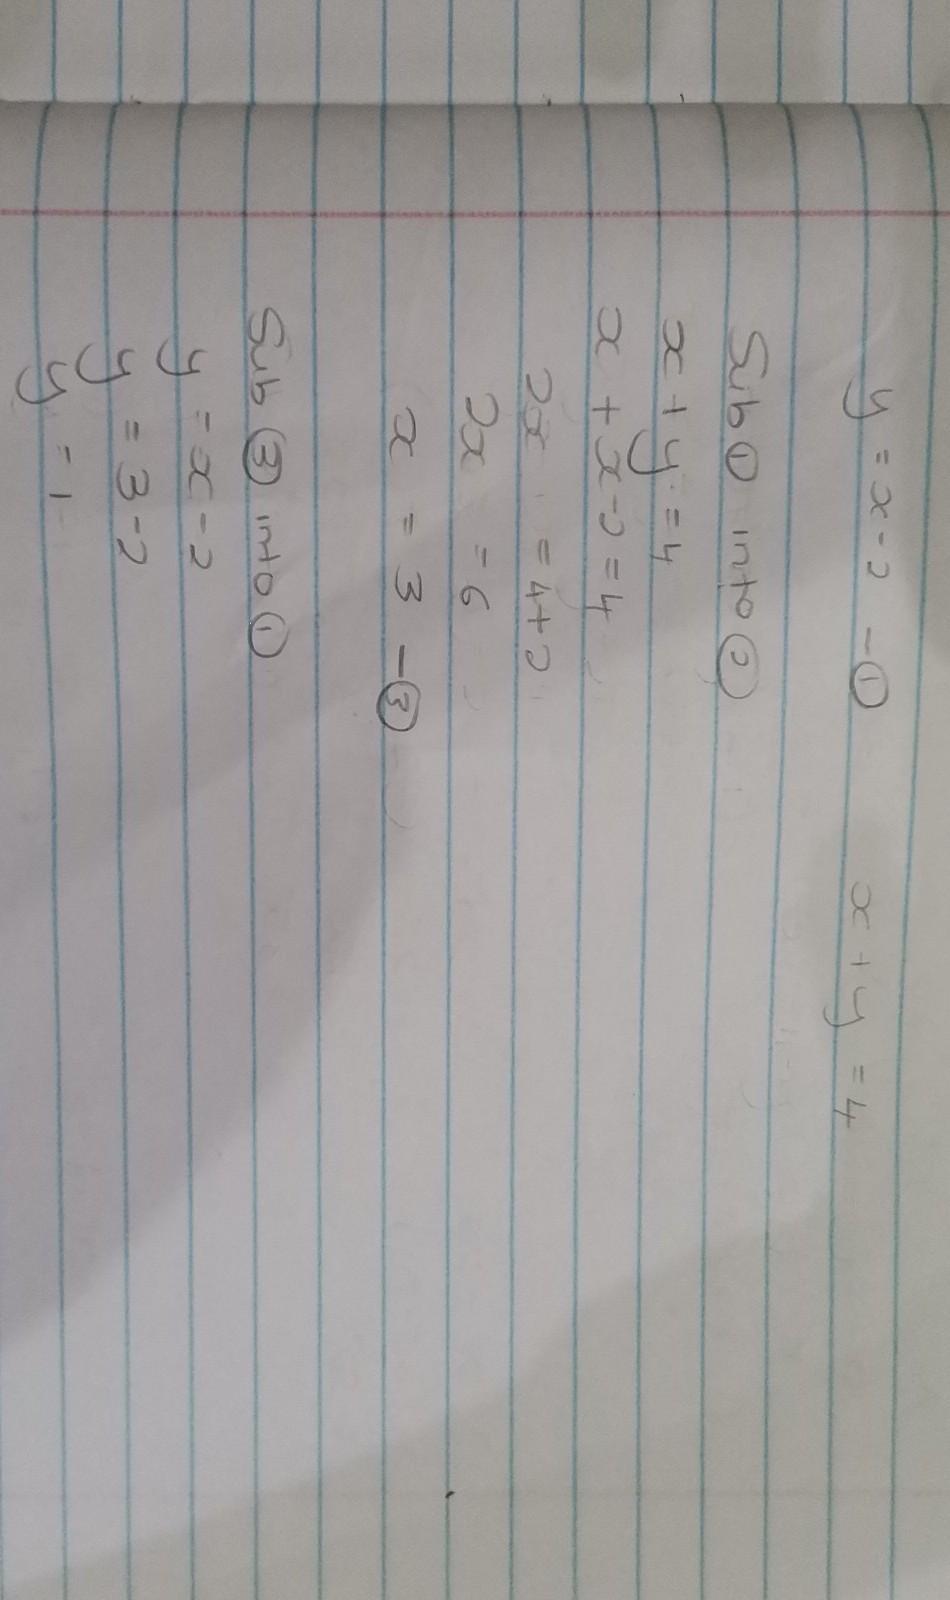 y = x - 2 - ① x + y = 4
Sub ① into ②
x + y = 4
x + x - 2 = 4
2x = 4 + 2
2x = 6
x = 3 - ③
Sub ③ into ①
y = x - 2
y = 3 - 2
y = 1